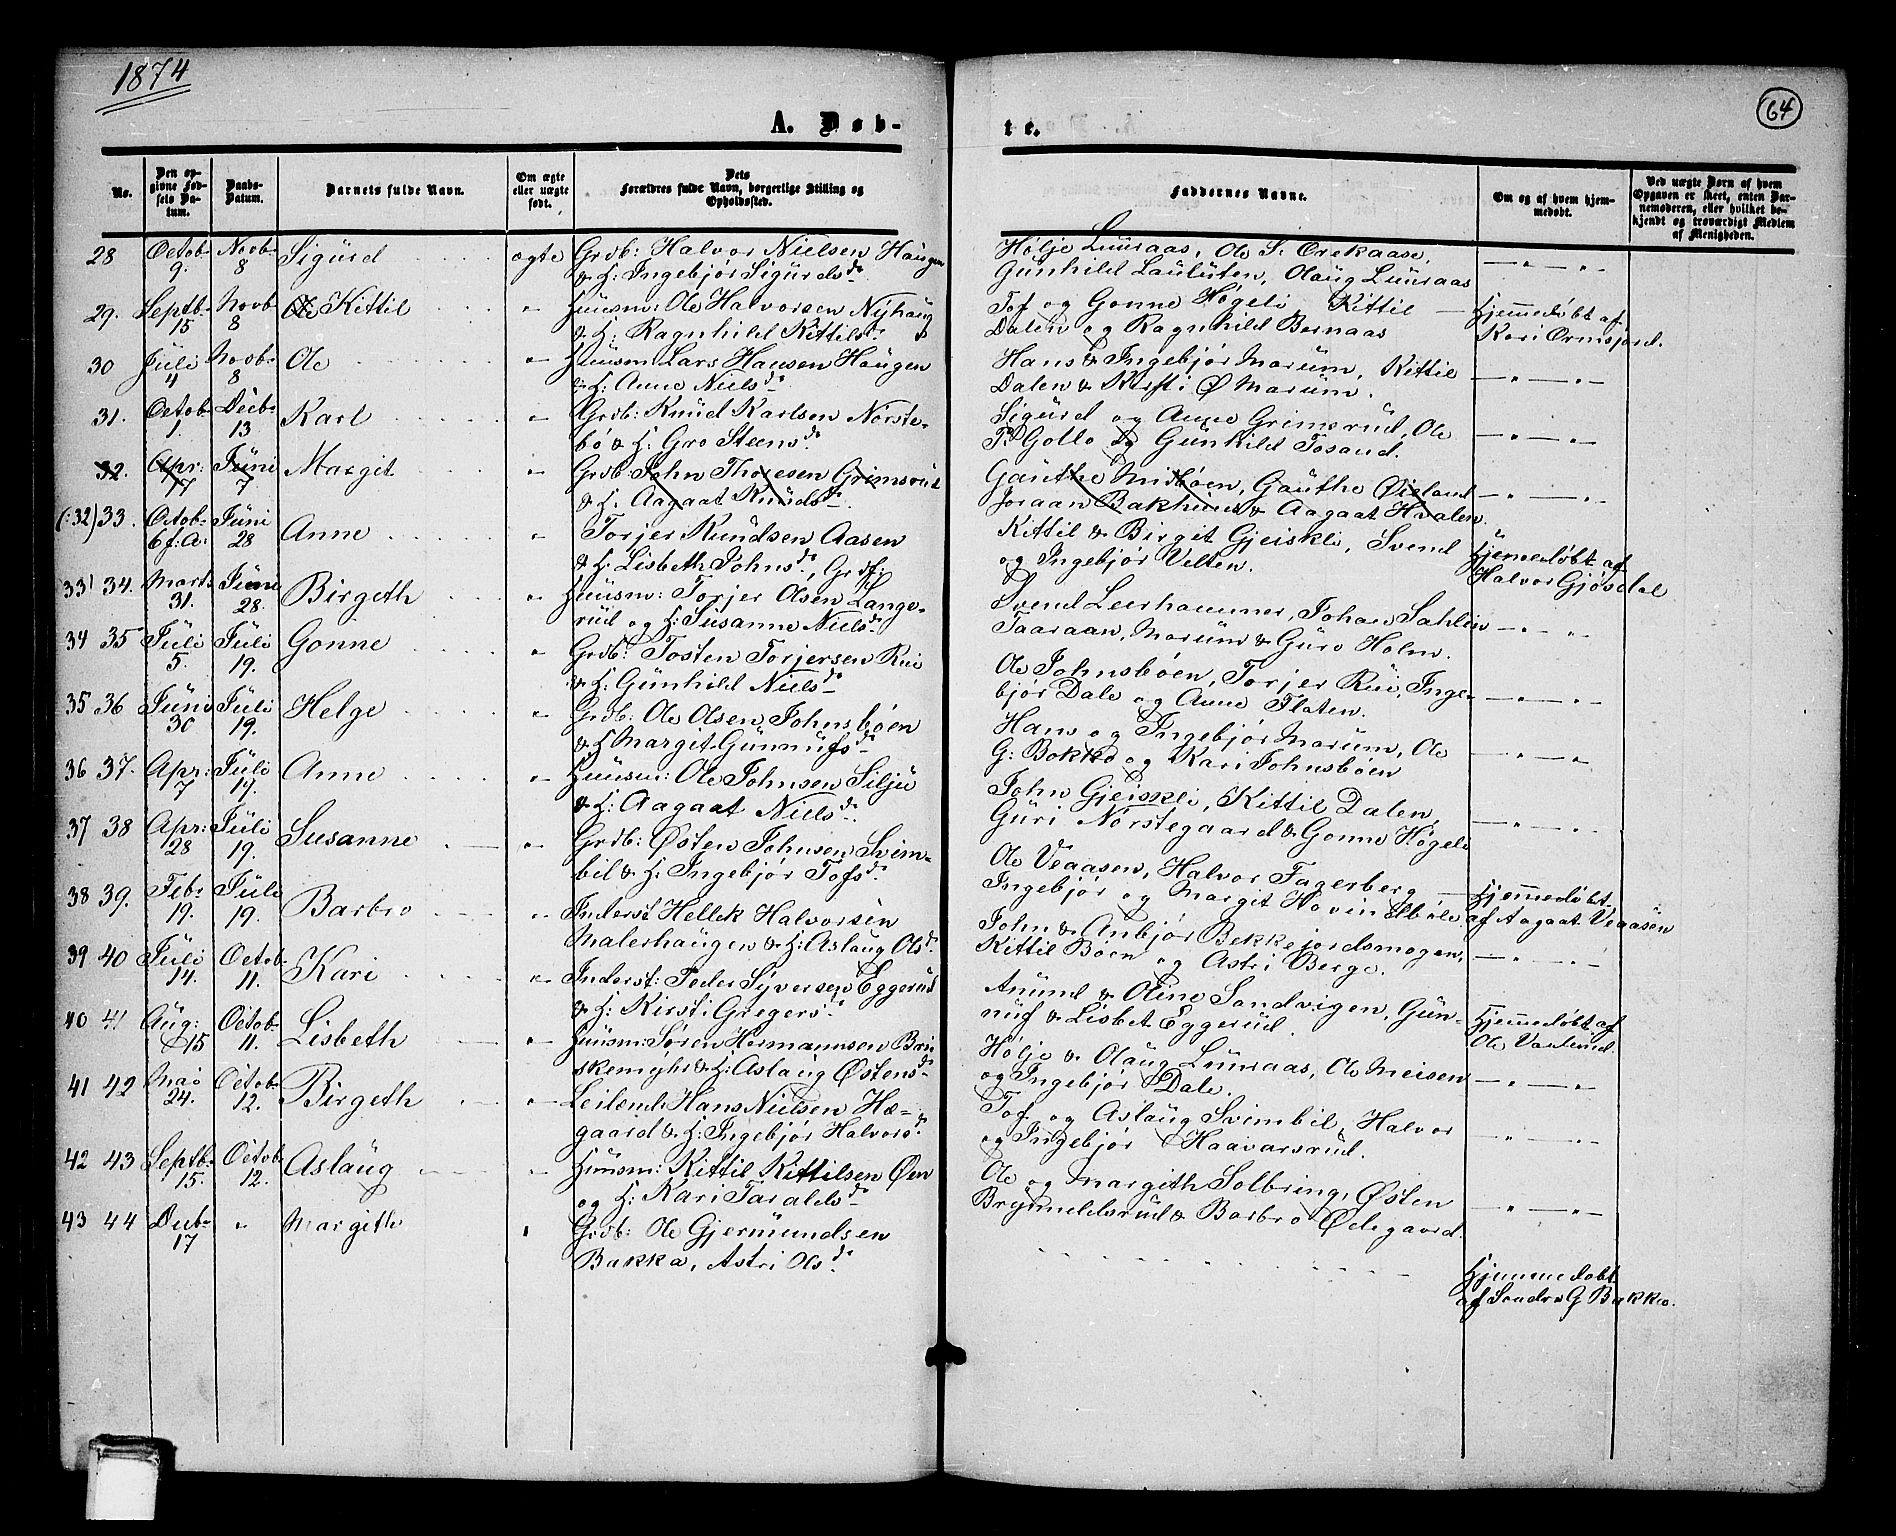 1874
64
A. Døb-
te.
No.
Den op-
givne Fød-
sels Da-
tum.
Daabs-
Datum.
Barnets fulde Navn.
Om ægte
eller uægte
født.
Dets
Forældres fulde Navn, borgerlige Stilling og
Opholdssted.
Faddernes Navne.
Om og af hvem hjem-
medøbt.
Ved uægte Børn af hvem
Opgaven er skeet, enten Bar-
nemoderen, eller hvilket be-
kjendt og troværdigt Medlem
af Menigheden.
28 Octob- 9. Novb- 8 Sigurd ægte Grdb: Halvor Nielsen Haugen
& H: Ingebjør Sigurdsdr.
Hølje Luuraas, Ole S. Orekaase,
Gunhild Lauluten, Olaug Luuraas
29. Septb- 15 Novb- 8 Ole Kittil " Huusm: Ole Halvorsen Nyhaug
& H: Ragnhild Kittilsdr.
Tof og Gonne Høgeli Kittil
Dalen og Ragnhild Bernaas
Hjemmedøbt af
Kari Ormsjord.
30 Juli 4 Novb- 8 Ole " Huusm: Lars Hansen Haugen
& H: Anne Nielsdr.
Hans & Ingebjør Marum, Kittil
Dalen & Kirsti Ø Marum.
31. Octob- 1. Decb- 13 Karl " Grdb: Knud Karlsen Nørste-
bø & H: Gro Steensdr
Sigurd og Anne Grimsrud, Ole
T. Gollo og Gunhild Tosand.
32. Apr: 17 Juni 7 Margit " Grdb: John Thoresen Grimsrud
& H. Aagaat Knudsdr.
Gauthe Midbøen, Gauthe Øieland
Joraan Bakhuus & Aagaat Hvalen.
(:32) 33. Octob- 6 f: A: Juni 28 Anne " Torjer Knudsen Aasen
& H: Lisbeth Johnsdr, Grdf:
Kittil & Birgit Gjeiskli, Svend
og Ingebjør Velten.
Hjemmedøbt af
Halvor Gjøsdal
33 34. Marts 31. Juni 28. Birgeth " Huusm: Torjer Olsen Lange-
rud og H: Susanne Nielsdr
Svend Leerhammer, Johan Sahlin
Taaraan, Marum & Guro Holm.
34 35 Juli 5. Juli 19. Gonne " Grdb: Tosten Torjersen Rui
& H: Gunhild Nielsdr
Ole Johnsbøen, Torjer Rui, Inge-
bjør Dale og Anne Flaten.
35 36 Juni 30 Juli 19. Helge " Grdb: Ole Olsen Johnsbøen
& H Margit Gunnufsdr
Hans og Ingebjør Marum, Ole
G: Bakko og Kari Johnsbøen
36 37. Apr: 7 Juli 19. Anne " Huusm: Ole Johnsen Silju
& H: Aagaat Nielsdr.
John Gjeiskli, Kittil Dalen,
Guri Nørstegaard & Gonne Høgeli
37 38 Apr: 28 Juli 19. Susanne " Grdb: Østen Johnsen Svim-
bil & H: Ingebjør Tofsdr.
Ole Veaasen, Halvor Fagerberg
Ingebjør og Margit Hovin
38 39. Feb- 19. Juli 19. Barbro " Inderst Hellek Halvorsen
Malerhaugen & H: Aslaug Olsdr.
John & Anbjør Bekkejordsmogen,
Kittil Bøen og Astri Berge.
Hjemmedøbt
af Aagaat Veaasen
39 40 Juli 14. Octob- 11. Kari " Inderst: Peder Syversen Eggerud
& H: Kirsti Gregersdr
Anund & Oline Sandvigen, Gun-
nuf & Lisbet Eggerud.
40 41 Aug: 15 Octob- 11. Lisbeth " Huusm: Søren Hermannsen Bru
skemyhr & H: Aslaug Østensdr
Hølje & Olaug Luuraas, Ole Meisen
og Ingebjør Dale.
Hjemmedøbt af
Ole
41 42 Mai 24. Octob- 12. Birgeth " Leilænd: Hans Nielsen Hæ-
gaard & H: Ingebjør Halvorsdr.
Tof og Aslaug Svimbil, Halvor
og Ingebjør Haavarsrud.
42 43 Septb- 15. Octob- 12. Aslaug " Huusm: Kittil Kittilsen Øen
og H: Kari Taraldsdr
Ole og Margith Solbring, Østen
Bryniuldsrud & Barbro Ødegaard.
43 44 Decb- 17 " Margith " Grdb: Ole Gjermundsen
Bakka, Astri Olsdr.
Hjemmedøbt
af Sondre G Bakko.